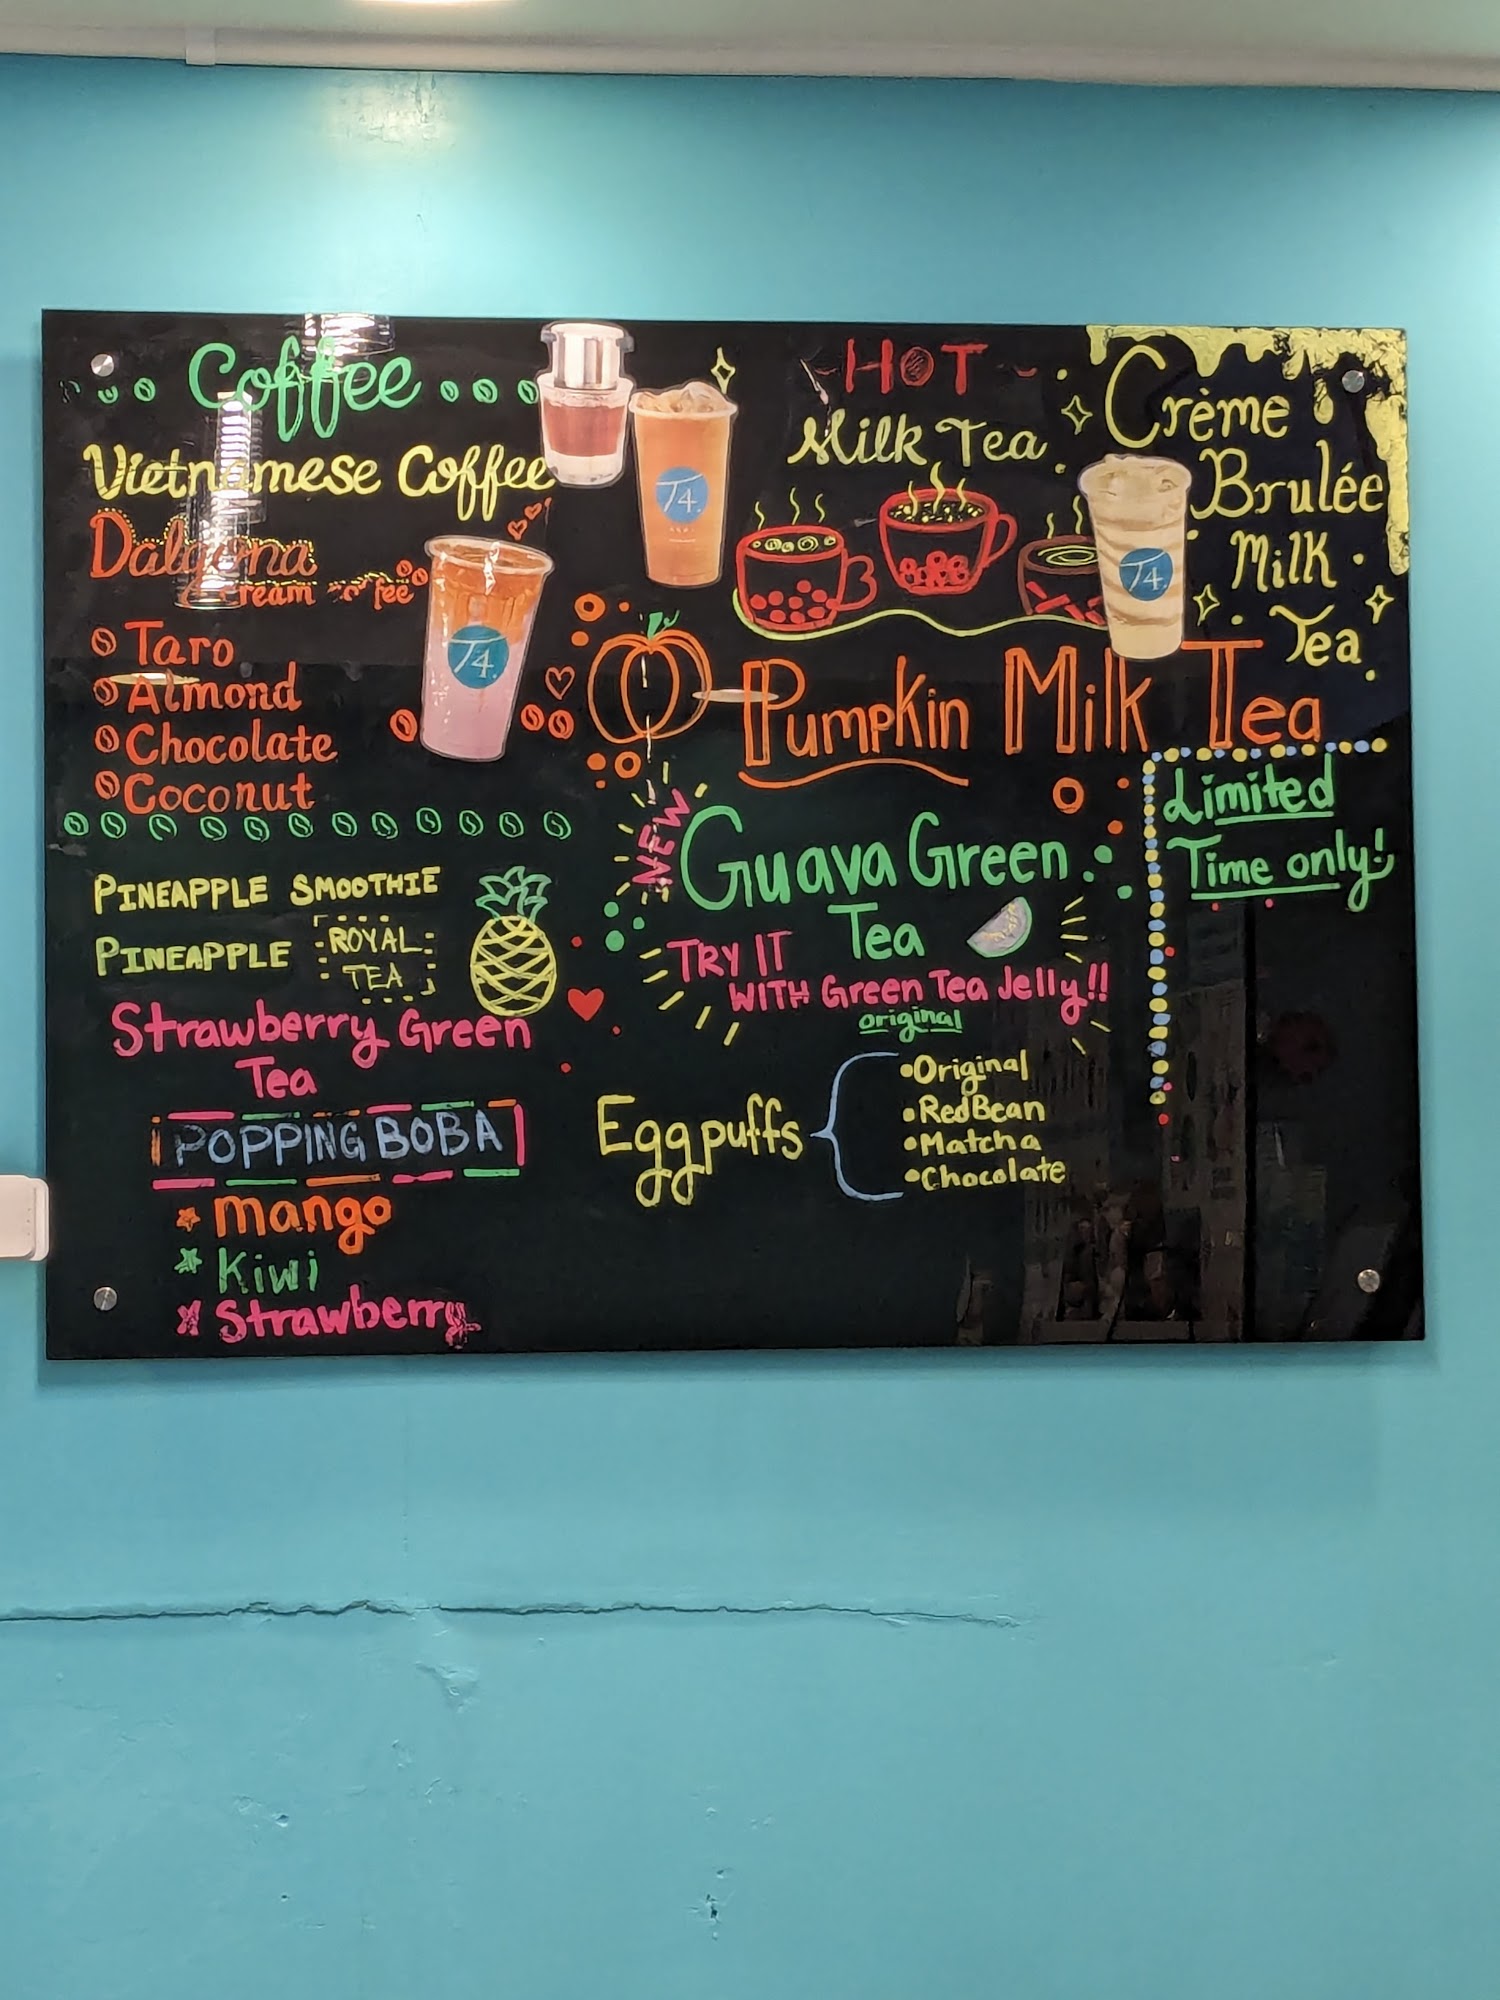 Coffee
Vietnamese Coffee
Dalgona
Cream Coffee
Taro
Almond
Chocolate
Coconut
PINEAPPLE SMOOTHIE
PINEAPPLE ROYAL
TEA
Strawberry Green
Tea
POPPING BOBA
Mango
Kiwi
Strawberry
T4.
T4.
HOT
Milk Tea
T4.
Crème
Brulée
Milk
Tea
Pumpkin Milk Tea
Limited
Time only!
NEW
Guava Green
Tea
TRY IT
WITH Green Tea Jelly!!
original
Egg puffs
Original
Red Bean
Matcha
Chocolate